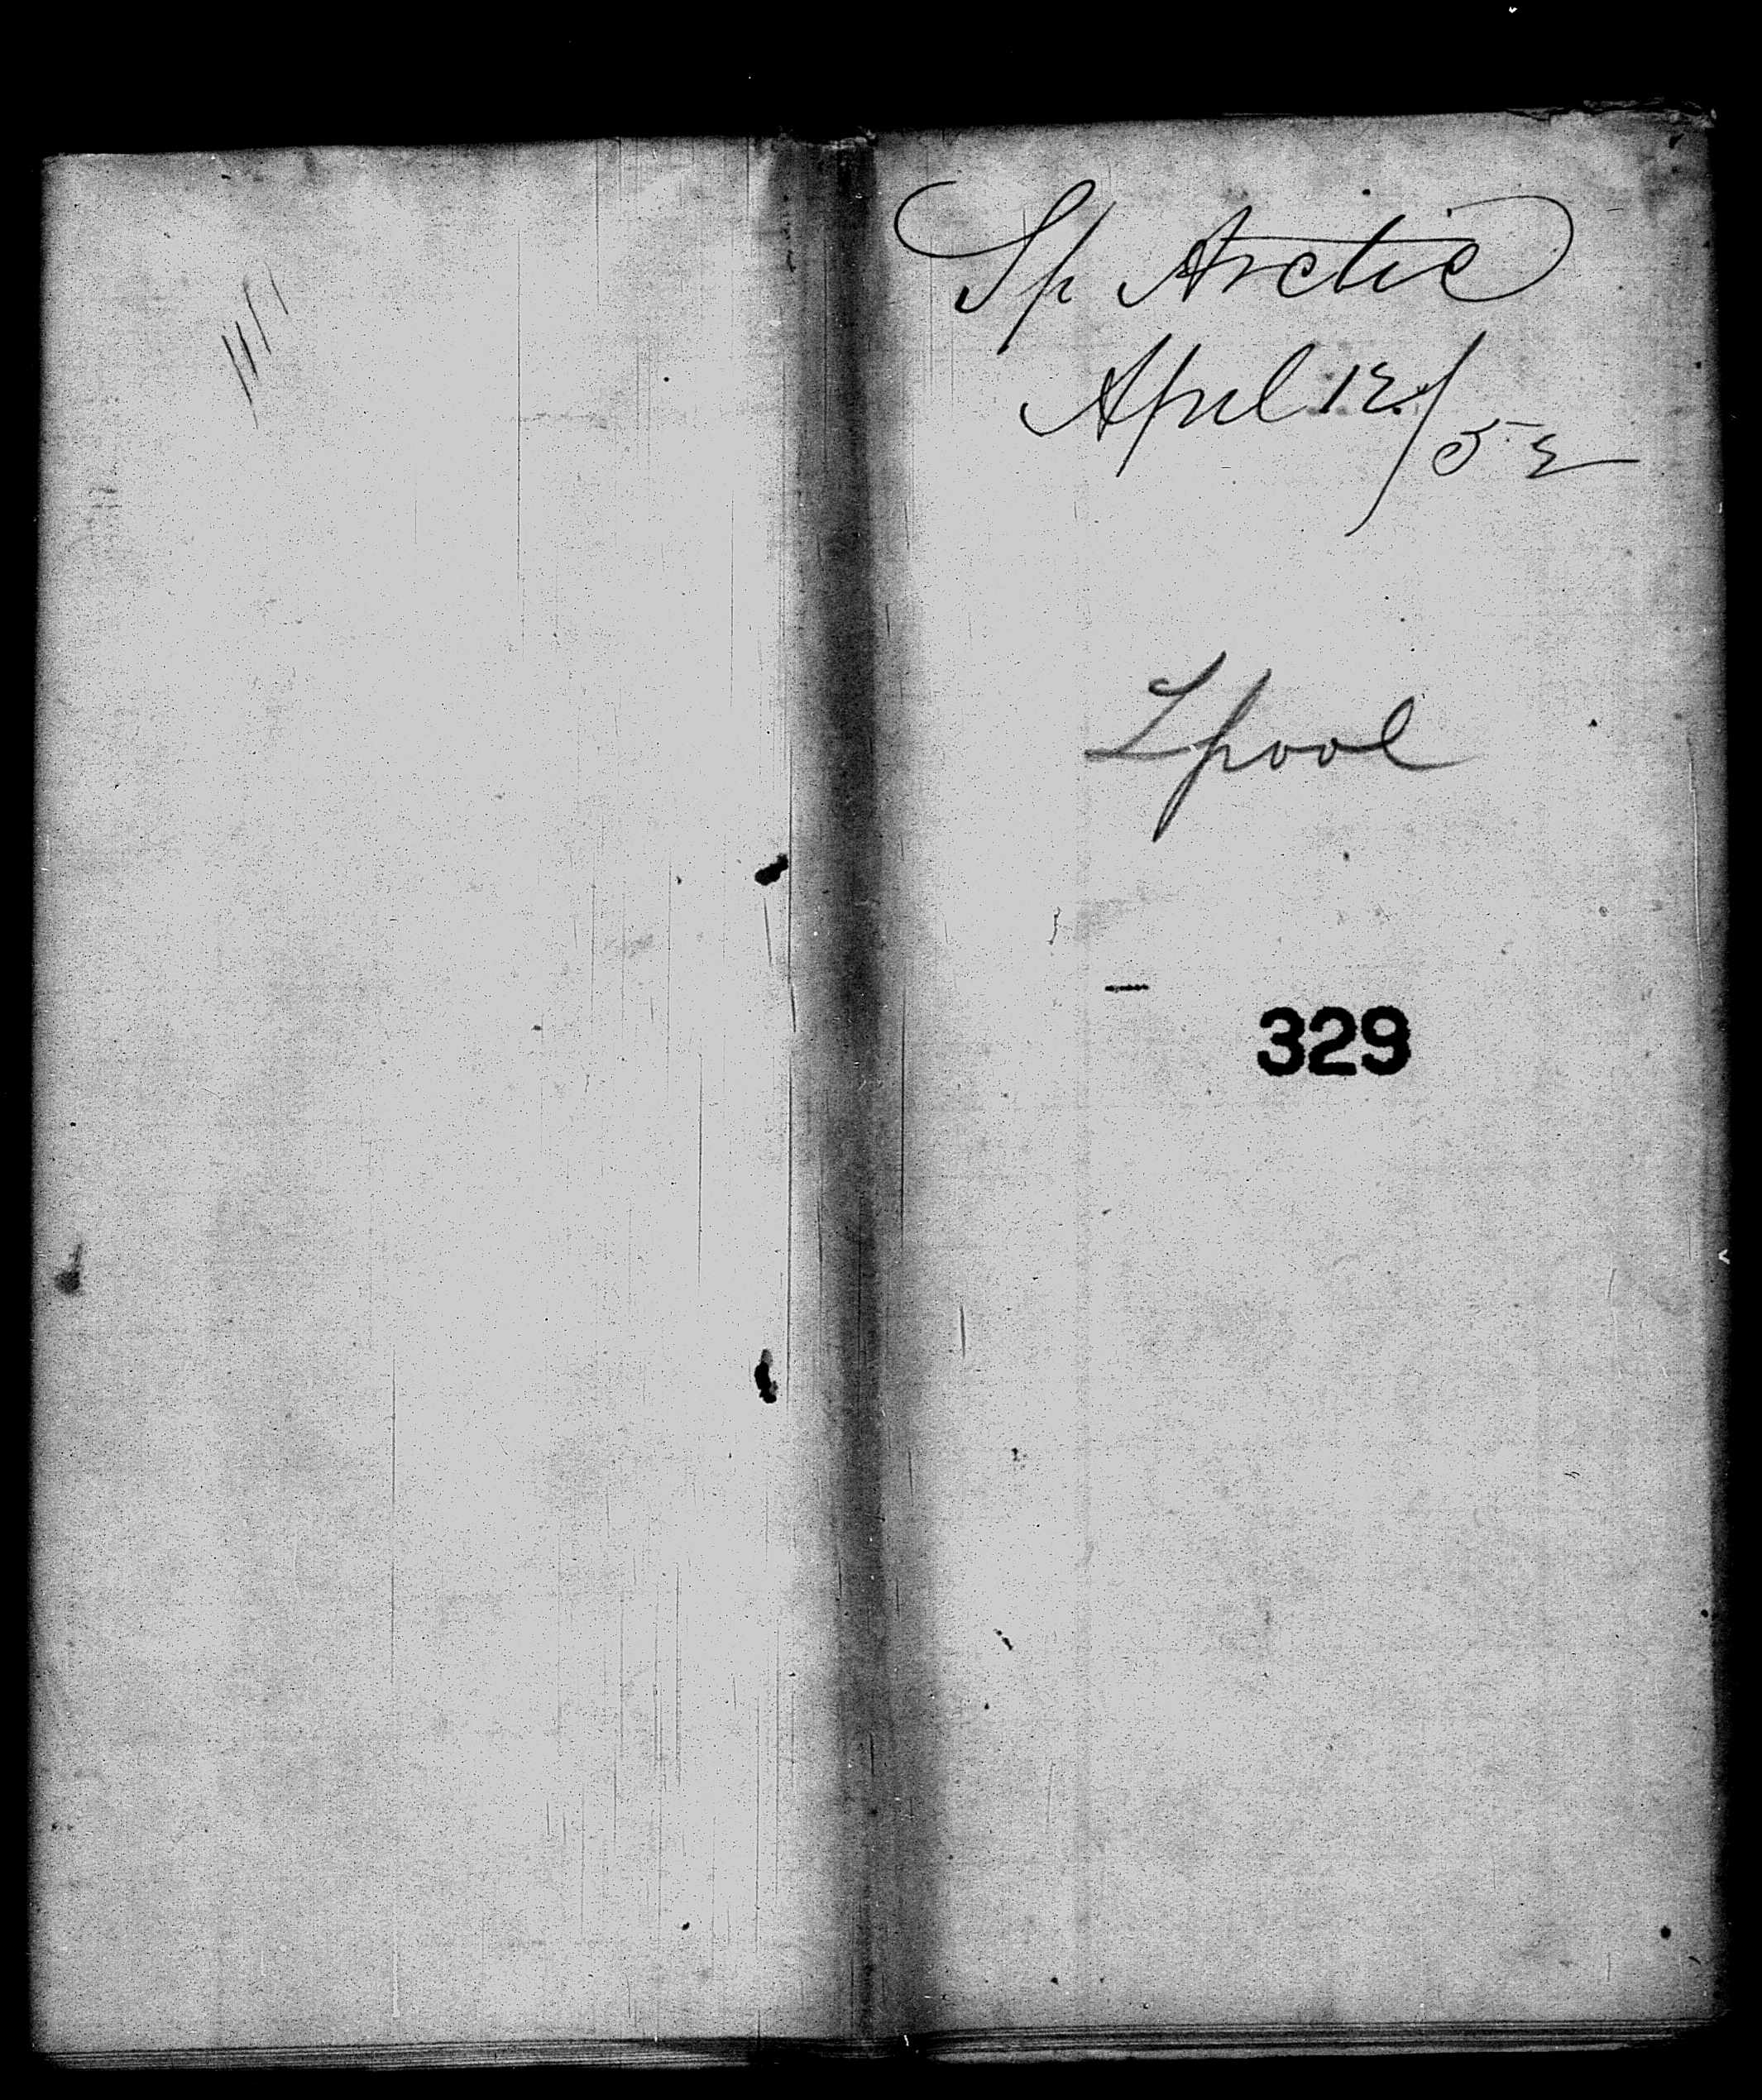 Sp Arctic
April 12/52
Lpool
329